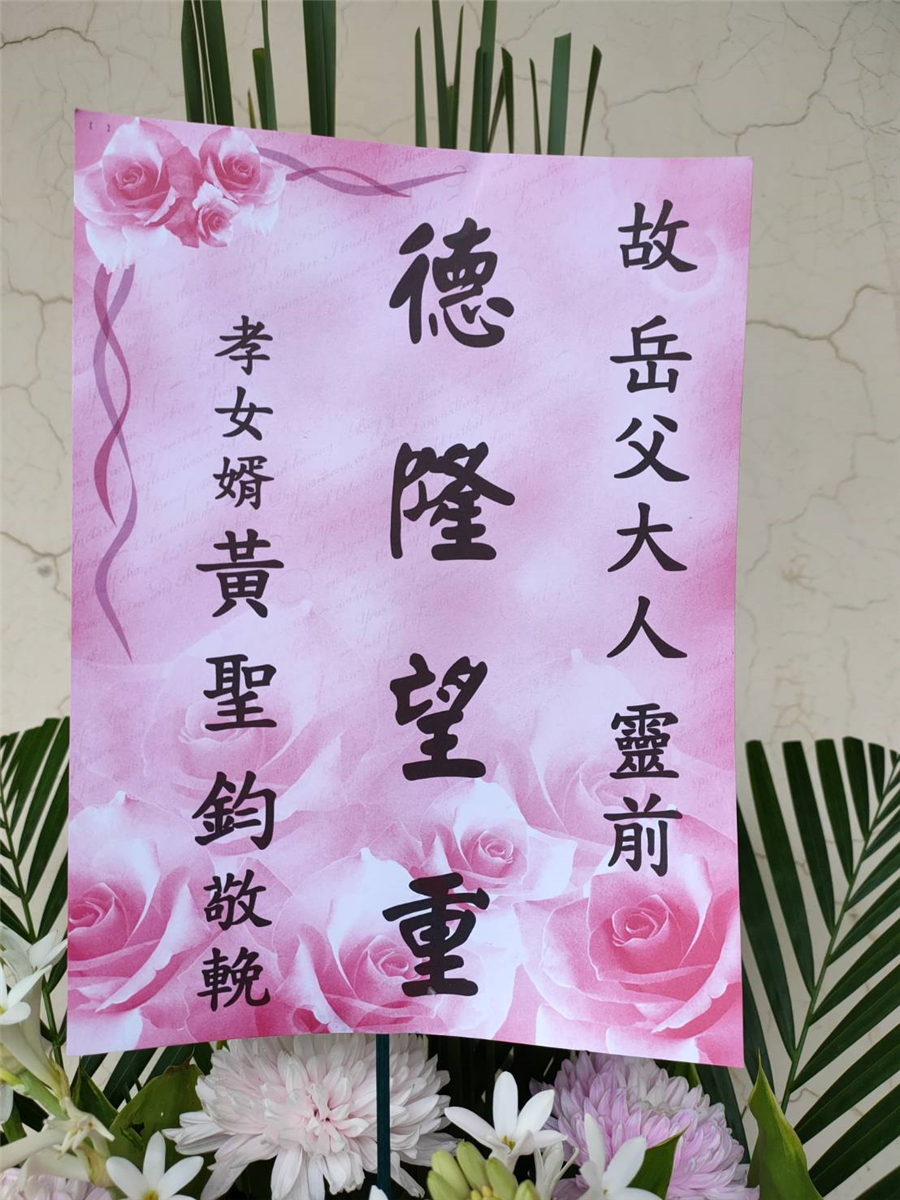 故 岳父大人 靈前
德隆望重
孝女婿 黃聖鈞 敬輓